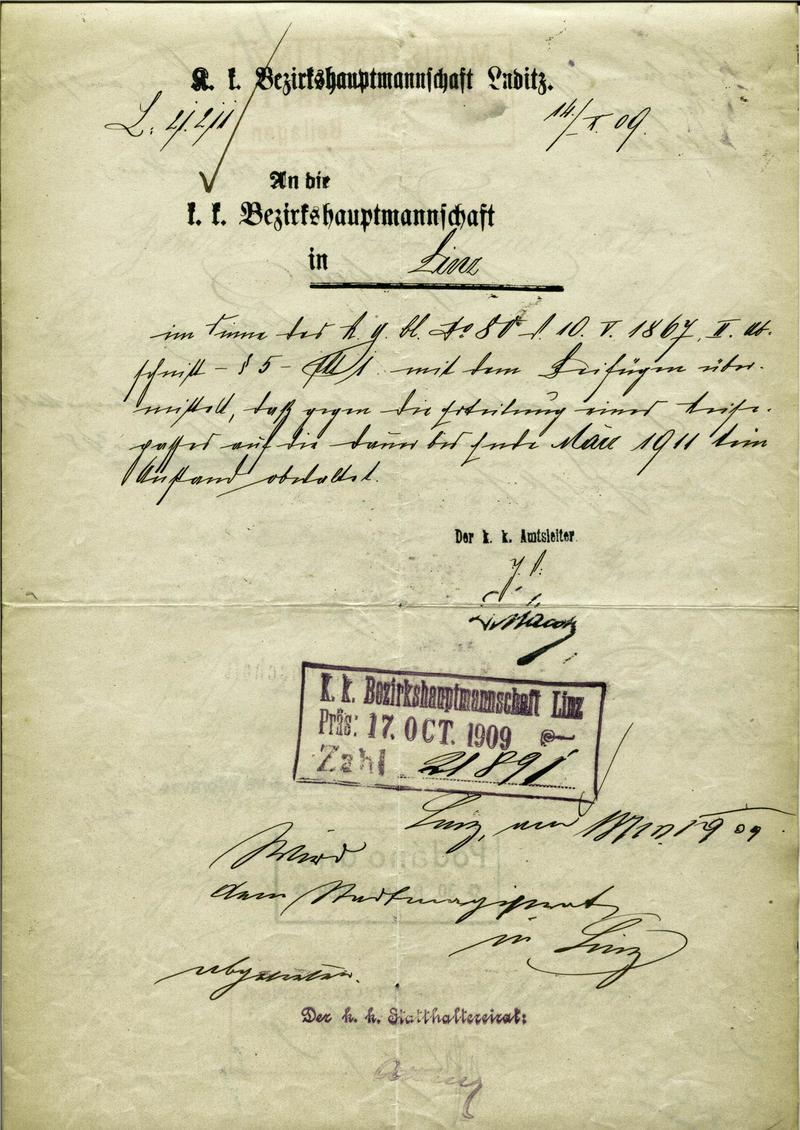 K. k. Bezirkshauptmannschaft Luditz.
14/X. 09.
An die
k. k. Bezirkshauptmannschaft
in Linz
im Sinne des R. g. bl. No 80 d. 10. V. 1867, II. Ab-
schnitt - § 5 - mit dem Beifügen über-
mittelt, daß gegen die Erteilung eines Reise-
passes auf die Dauer bis Ende März 1911 kein
Anstand obwaltet.
Der k. k. Amtsleiter
K. k. Bezirkshauptmannschaft Linz
Präs: 17. OCT. 1909
Zahl 21891
Linz, am
Wird
dem Stadtmagistrat
in Linz
abgetreten.
Der k. k. Statthaltereirat: